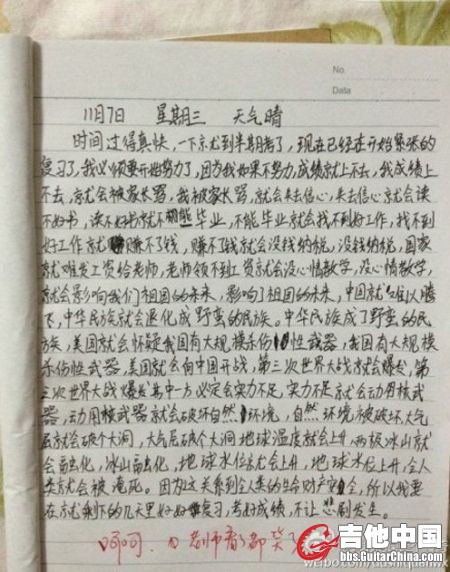 No.
Data
11月7日 星期三 天气晴
时间过得真快,一下京尤到半期考了,现在已经在开始紧张的
复习了,我必须要开始努力了,因为我如果不努力,成绩就上不去,我成绩上
不去,就会被家长骂,我被家长骂,就会失去信心,失去信心就会读
不好书,读不好书就不能毕业,不能毕业就会找不到好工作,找不到
好工作就赚不了钱,赚不了钱就会没钱纳税,没钱纳税,国家
就难发工资给老师,老师领不到工资就会没心情教学,没心情教学,
就会影响我们祖国的未来,影响了祖国的未来,中国就难以腾
飞,中华民族就会退化成野蛮的民族。中华民族成了野蛮的民
族,美国就会怀疑我国有大规模杀伤性武器,我国有大规
模杀伤性武器,美国就会向中国开战,第三次世界大战就会爆发,第
三次世界大战爆发其中一方必定会实力不足,实力不足就会动用核武
器,动用核武器就会破坏自然环境,自然环境被破坏,大气
层就会破个大洞,大气层破个大洞地球温度就会上升,两极冰山就
会融化,冰山融化,地球水位就会上升,地球水位上升,全人
类就会被淹死。因为这关系到全人类的生命财产安全,所以我要
在就剩下的几天里好好复习,考好成绩,不让悲剧发生。
呵呵, 老师看了都笑了
吉他中国
bbs.GuitarChina.com
weibo.com/